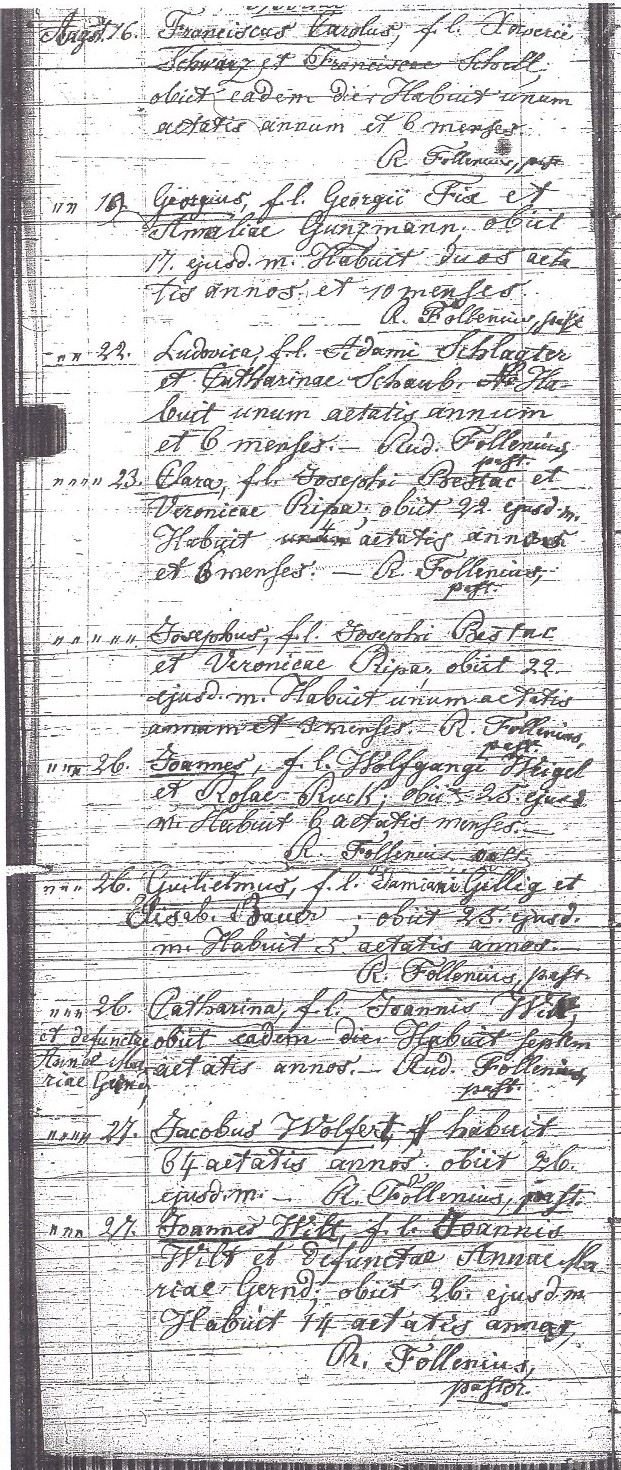 Aug. 16. Franciscus Carolus, f. l.
Schwarz et Franciscae Scholl,
obiit eadem die. Habuit unum
aetatis annum et 6 menses.
R. Follenius, past.
" " Georgius, f. l. Georgii Fix et
Amaliae Gunzmann, obiit
17. ejusd. m. Habuit duos aeta
tis annos et 10 menses.
R. Follenius, past.
" " 22. Ludovica, f. l. Adami Schlagter
et Catharinae Schaub. Ha-
buit unum aetatis annum
et 6 menses. — Rud. Follenius,
past.
" " " " 23. Clara, f. l. Josephi Bestac et
Veronicae Ripa; obiit 22 ejusd. m.
Habuit 4 aetatis annos
et 3 menses. — R. Follenius,
past.
" " " " " Josephus, f. l. Josephi Bestac
et Veronicae Ripa; obiit 22.
ejusd. m. Habuit unum aetatis
annum et 3 menses. — R. Follenius,
past.
" " " 26. Joannes, f. l. Wolfgangi Weigel
et Rosae Ruck; obiit 25. ejusd.
m. Habuit 6 aetatis menses. —
R. Follenius past.
" " " 26. Guilielmus, f. l. Damiani Gillig et
Elisab. Bauer; obiit 25. ejusd.
m. Habuit 5 aetatis annos. —
R. Follenius, past.
" " " 26. Catharina, f. l. Joannis Wilt
et defunctae Annae Ma
riae Gernd,
obiit eadem die. Habuit septem
aetatis annos. — Rud. Follenius,
past.
" " " " 27. Jacobus Wolfert, habuit
64 aetatis annos. obiit 26.
ejusd. m. — R. Follenius, past.
" " " 27. Joannes Wilt, f. l. Joannis
Wilt et defunctae Annae Ma-
riae Gernd; obiit 26. ejusd. m.
Habuit 14 aetatis annos,
R. Follenius,
pastor.